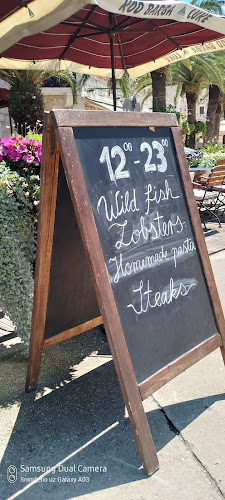 KOD BARBA LUKE
12⁰⁰ - 23⁰⁰
Wild fish
Lobsters
Homemade pasta
-Steaks-
Samsung Dual Camera
Snimljeno uz Galaxy A03